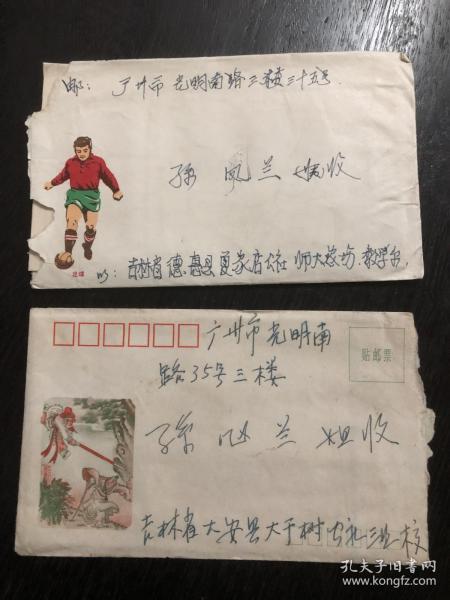 邮: 广州市光明南路三楼三十五号.
孙凤兰姐收
足球
吉林省德惠县夏家店公社 师大农场 教学台.
广州市光明南
贴邮票
路35号三楼
孙 兰姐收
吉林省大安县大于树
孔夫子旧书网
www.kongfz.com